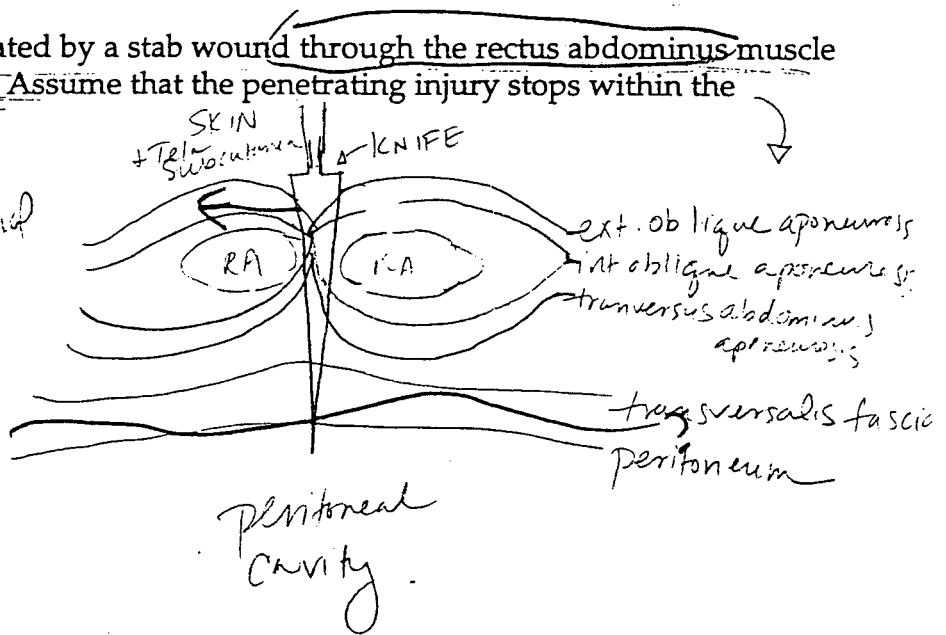 ated by a stab wound through the rectus abdominus muscle
Assume that the penetrating injury stops within the
SKIN
+ Tela
KNIFE
RA
RA
ext. oblique aponeurosis
int oblique aponeurosis
tranversus abdominus
aponeurosis
transversalis fascia
peritoneum
peritoneal
cavity.